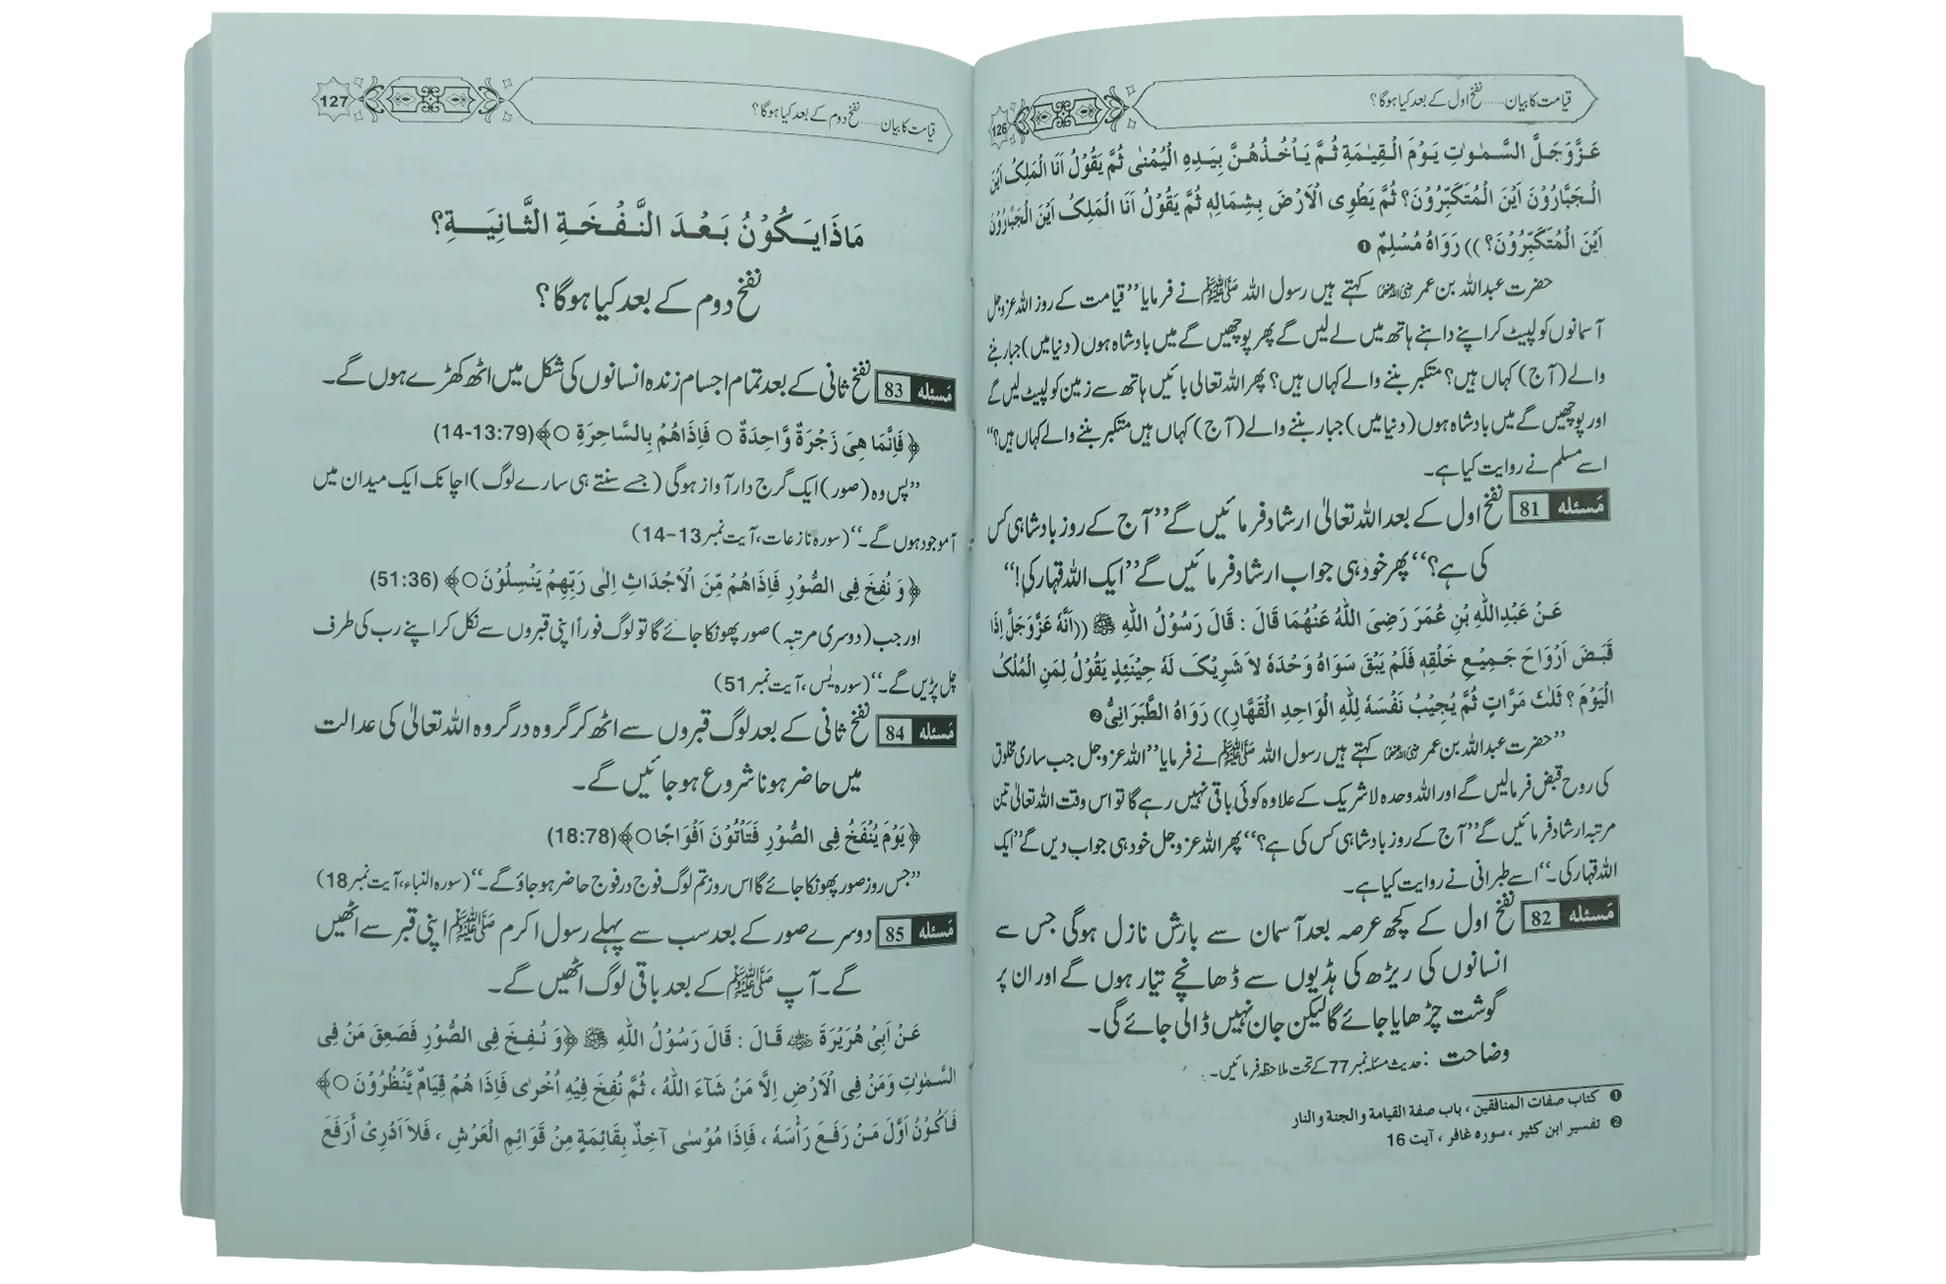 قیامت کا بیان……نفخ اول کے بعد کیا ہوگا؟
126
عَزَّوَجَلَّ السَّمٰوٰتِ یَوْمَ الْقِیٰمَةِ ثُمَّ یَاْخُذُهُنَّ بِیَدِهِ الْیُمْنٰی ثُمَّ یَقُوْلُ اَنَا الْمَلِکُ اَیْنَ
الْجَبَّارُوْنَ اَیْنَ الْمُتَکَبِّرُوْنَ؟ ثُمَّ یَطْوِی الْاَرْضَ بِشِمَالِهٖ ثُمَّ یَقُوْلُ اَنَا الْمَلِکُ اَیْنَ الْجَبَّارُوْنَ
اَیْنَ الْمُتَکَبِّرُوْنَ؟ )) رَوَاهُ مُسْلِمٌ ❶
حضرت عبداللہ بن عمر رضی اللہ عنہما کہتے ہیں رسول اللہ ﷺ نے فرمایا ’’قیامت کے روز اللہ عزوجل
آسمانوں کو لپیٹ کر اپنے داہنے ہاتھ میں لے لیں گے پھر پوچھیں گے میں بادشاہ ہوں (دنیا میں) جبار بننے
والے (آج) کہاں ہیں؟ متکبر بننے والے کہاں ہیں؟ پھر اللہ تعالی بائیں ہاتھ سے زمین کو لپیٹ لیں گے
اور پوچھیں گے میں بادشاہ ہوں (دنیا میں) جبار بننے والے (آج) کہاں ہیں متکبر بننے والے کہاں ہیں؟‘‘
اسے مسلم نے روایت کیا ہے۔
مَسئله 81 نفخ اول کے بعد اللہ تعالیٰ ارشاد فرمائیں گے ’’آج کے روز بادشاہی کس
کی ہے؟‘‘ پھر خود ہی جواب ارشاد فرمائیں گے ’’ایک اللہ قہار کی!‘‘
عَنْ عَبْدِاللّٰهِ بْنِ عُمَرَ رَضِیَ اللّٰهُ عَنْهُمَا قَالَ : قَالَ رَسُوْلُ اللّٰهِ ﷺ ((اَنَّهُ عَزَّوَجَلَّ اِذَا
قَبَضَ اَرْوَاحَ جَمِیْعِ خَلْقِهٖ فَلَمْ یَبْقَ سَوَاهُ وَحْدَهُ لاَ شَرِیْکَ لَهُ حِیْنَئِذٍ یَقُوْلُ لِمَنِ الْمُلْکُ
الْیَوْمَ ؟ ثَلٰثَ مَرَّاتٍ ثُمَّ یُجِیْبُ نَفْسَهُ لِلّٰهِ الْوَاحِدِ الْقَهَّارِ)) رَوَاهُ الطَّبَرَانِیُّ ❷
’’حضرت عبداللہ بن عمر رضی اللہ عنہما کہتے ہیں رسول اللہ ﷺ نے فرمایا ’’اللہ عزوجل جب ساری مخلوق
کی روح قبض فرما لیں گے اور اللہ وحدہ لاشریک کے علاوہ کوئی باقی نہیں رہے گا تو اس وقت اللہ تعالیٰ تین
مرتبہ ارشاد فرمائیں گے ’’آج کے روز بادشاہی کس کی ہے؟‘‘ پھر اللہ عزوجل خود ہی جواب دیں گے ’’ایک
اللہ قہار کی۔‘‘ اسے طبرانی نے روایت کیا ہے۔
مَسئله 82 نفخ اول کے کچھ عرصہ بعد آسمان سے بارش نازل ہوگی جس سے
انسانوں کی ریڑھ کی ہڈیوں سے ڈھانچے تیار ہوں گے اور ان پر
گوشت چڑھایا جائے گا لیکن جان نہیں ڈالی جائے گی۔
وضاحت : حدیث مسئلہ نمبر 77 کے تحت ملاحظہ فرمائیں۔
❶ کتاب صفات المنافقین ، باب صفة القیامة والجنة والنار
❷ تفسیر ابن کثیر ، سوره غافر ، آیت 16
قیامت کا بیان……نفخ دوم کے بعد کیا ہوگا؟
127
مَاذَا یَکُوْنُ بَعْدَ النَّفْخَةِ الثَّانِیَةِ؟
نفخ دوم کے بعد کیا ہوگا؟
مَسئله 83 نفخ ثانی کے بعد تمام اجسام زندہ انسانوں کی شکل میں اٹھ کھڑے ہوں گے۔
﴿ فَاِنَّمَا هِیَ زَجْرَةٌ وَّاحِدَةٌ ○ فَاِذَاهُمْ بِالسَّاحِرَةِ ○﴾(14-13:79)
’’پس وہ (صور) ایک گرج دار آواز ہوگی (جسے سنتے ہی سارے لوگ) اچانک ایک میدان میں
آموجود ہوں گے۔‘‘ (سورہ نازعات، آیت نمبر 13-14)
﴿ وَ نُفِخَ فِی الصُّوْرِ فَاِذَاهُمْ مِّنَ الْاَجْدَاثِ اِلٰی رَبِّهِمْ یَنْسِلُوْنَ○﴾ (51:36)
اور جب (دوسری مرتبہ) صور پھونکا جائے گا تو لوگ فوراً اپنی قبروں سے نکل کر اپنے رب کی طرف
چل پڑیں گے۔‘‘ (سورہ یٰس ، آیت نمبر 51)
مَسئله 84 نفخ ثانی کے بعد لوگ قبروں سے اٹھ کر گروہ در گروہ اللہ تعالیٰ کی عدالت
میں حاضر ہونا شروع ہوجائیں گے۔
﴿ یَوْمَ یُنْفَخُ فِی الصُّوْرِ فَتَاْتُوْنَ اَفْوَاجًا○﴾(18:78)
’’جس روز صور پھونکا جائے گا اس روز تم لوگ فوج در فوج حاضر ہوجاؤ گے۔‘‘ (سورہ النباء، آیت نمبر 18)
مَسئله 85 دوسرے صور کے بعد سب سے پہلے رسول اکرم ﷺ اپنی قبر سے اٹھیں
گے۔ آپ ﷺ کے بعد باقی لوگ اٹھیں گے۔
عَنْ اَبِیْ هُرَیْرَةَ رضی اللہ عنہ قَالَ : قَالَ رَسُوْلُ اللّٰهِ ﷺ ﴿وَ نُفِخَ فِی الصُّوْرِ فَصَعِقَ مَنْ فِی
السَّمٰوٰتِ وَمَنْ فِی الْاَرْضِ اِلَّا مَنْ شَآءَ اللّٰهُ ، ثُمَّ نُفِخَ فِیْهِ اُخْرٰی فَاِذَا هُمْ قِیَامٌ یَّنْظُرُوْنَ ○﴾
فَاَکُوْنُ اَوَّلَ مَنْ رَفَعَ رَأْسَهُ ، فَاِذَا مُوْسٰی آخِذٌ بِقَائِمَةٍ مِنْ قَوَائِمِ الْعَرْشِ ، فَلاَ اَدْرِیْ أَرَفَعَ